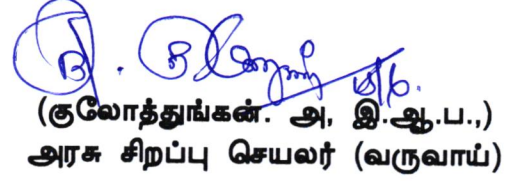 (குலோத்துங்கன். அ, இ.ஆ.ப.,)
அரசு சிறப்பு செயலர் (வருவாய்)